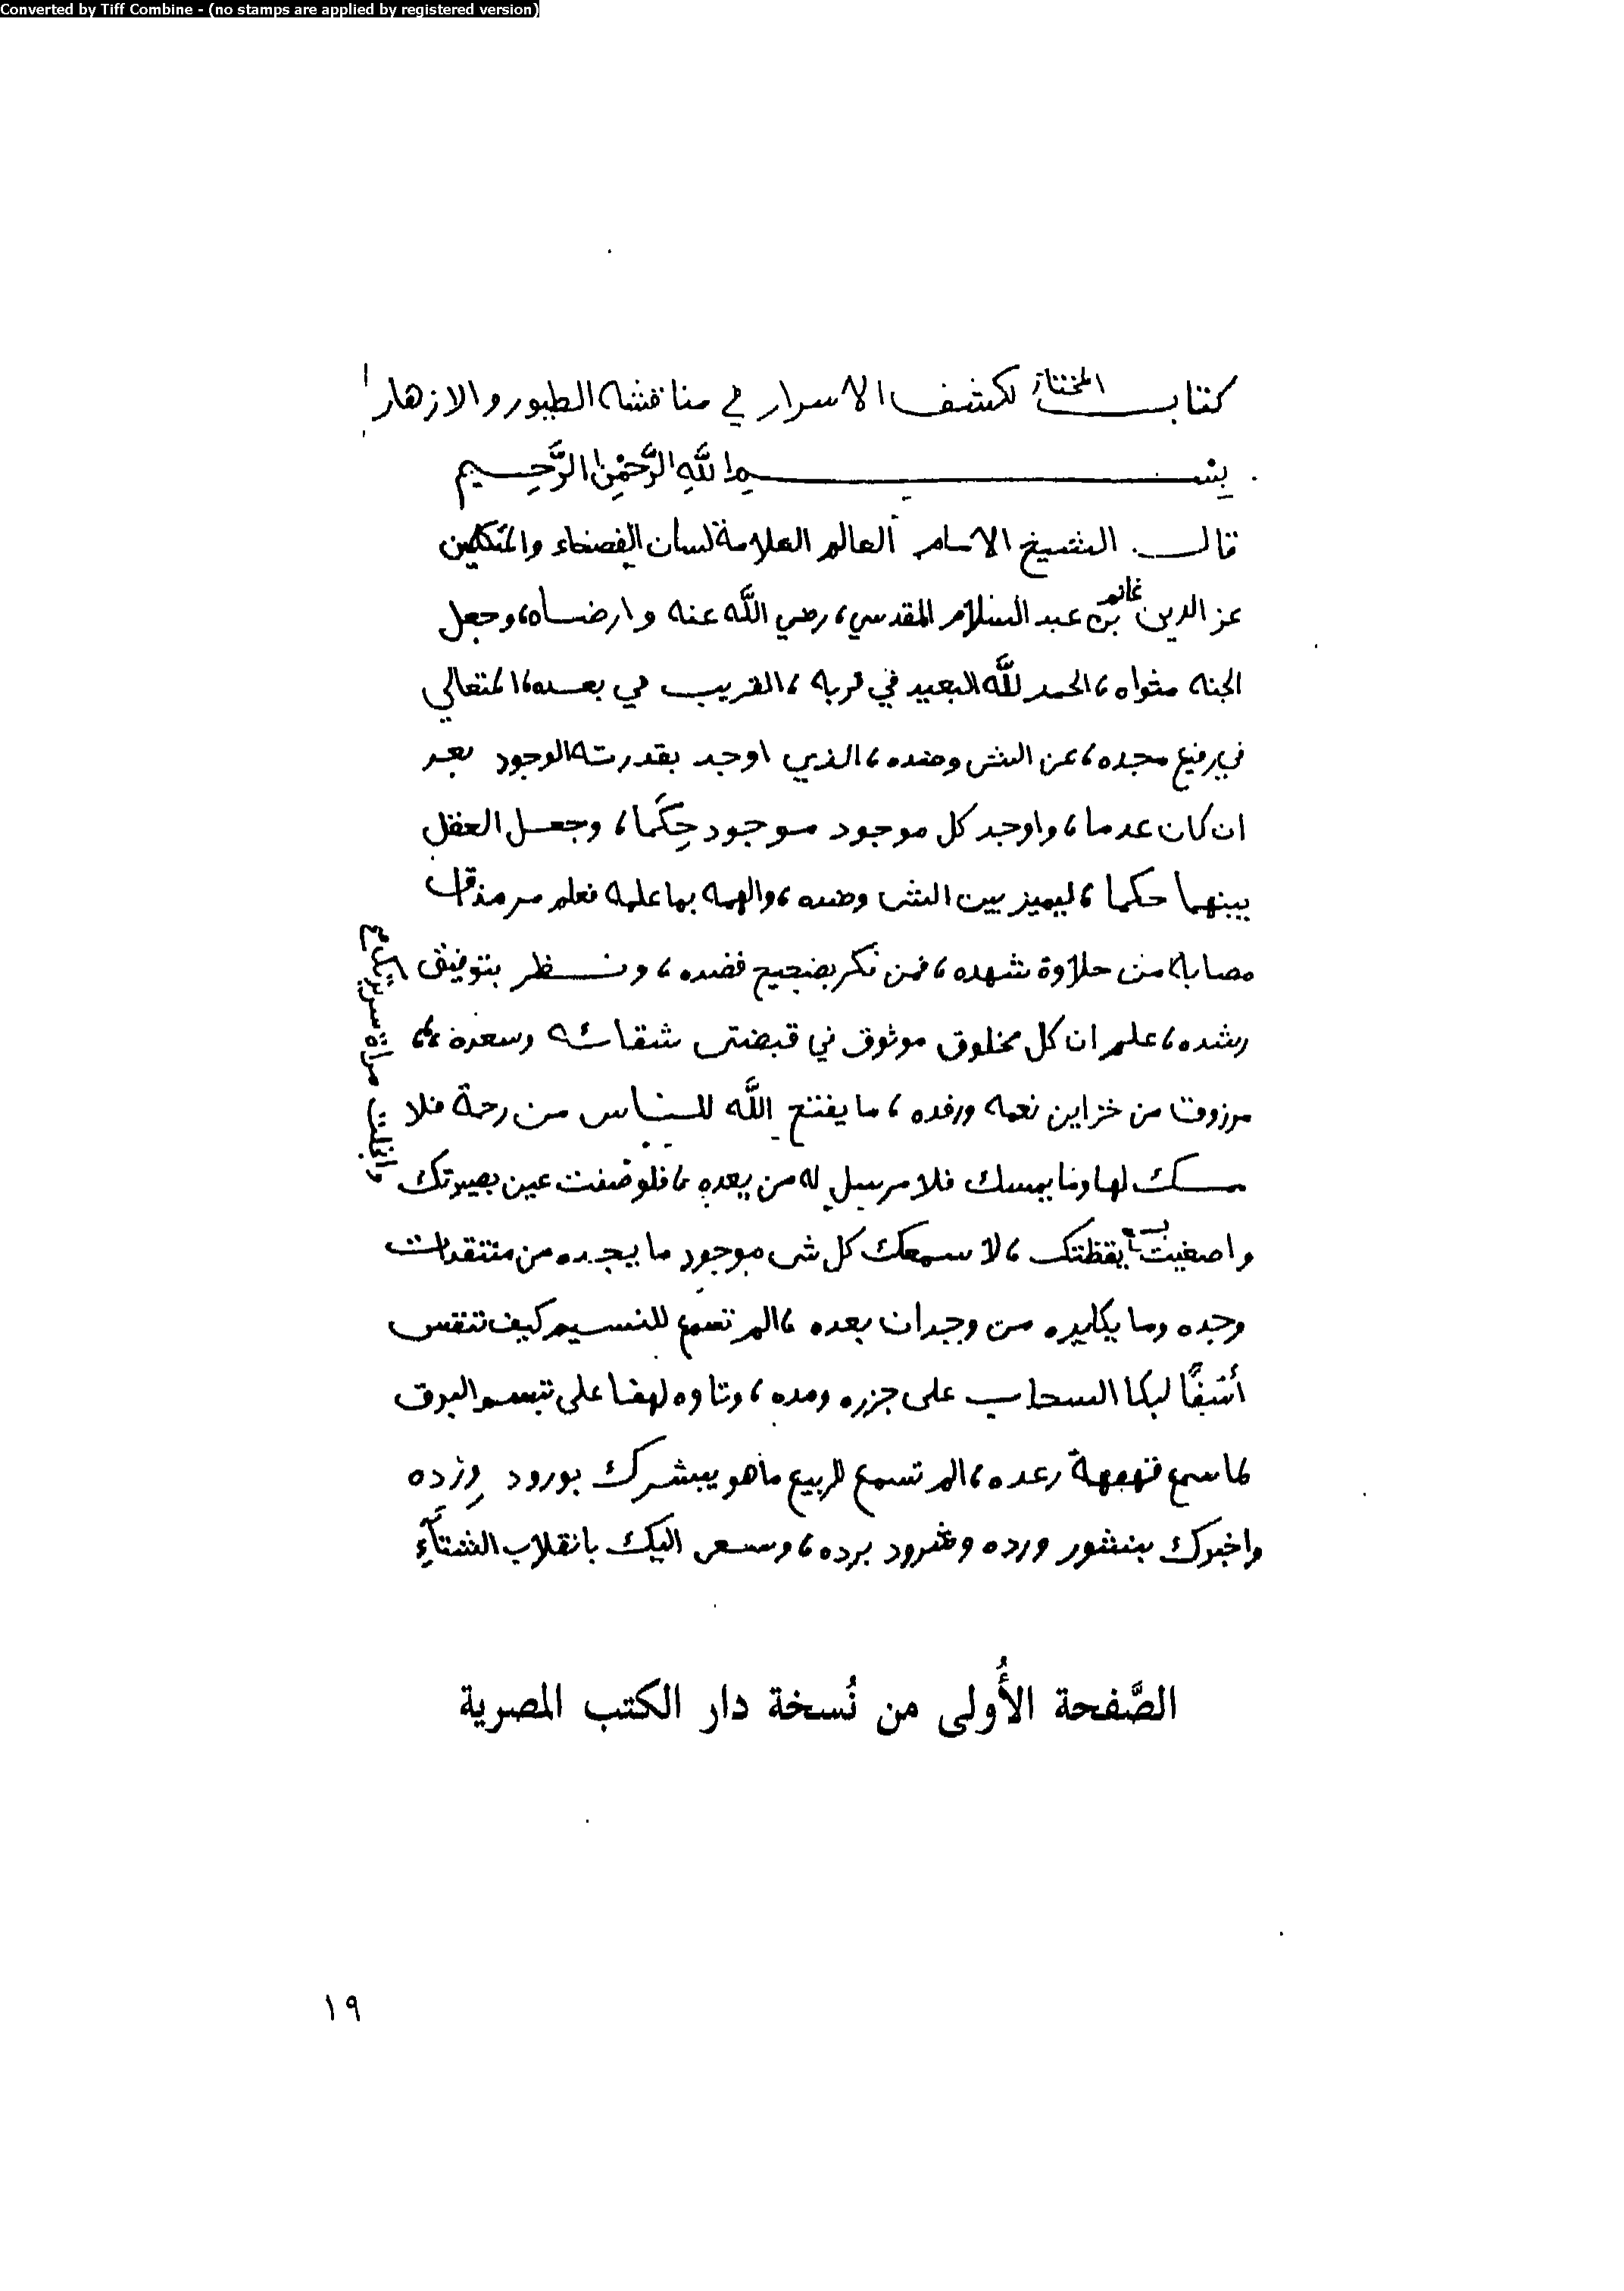 Converted by Tiff Combine - (no stamps are applied by registered version)
كتاب المختار لكشف الاسرار في مناقشة الطيور والازهار
بِسْمِ اللَّهِ الرَّحْمٰنِ الرَّحِيم
قال الشيخ الامام العالم العلامة لسان الفصحاء والمتكلمين
عز الدين بن غانم عبد السلام المقدسي، رضي اللَّه عنه وارضاه، وجعل
الجنه مثواه، الحمد للَّه البعيد في قربه، القريب في بعده، المتعالي
في رفيع مجده، عن الشى وضده، الذي اوجد بقدرته الوجود بعد
ان كان عدما، واوجد كل موجود موجود حِكَما، وجعل العقل
بينهما حكما، ليميز بين الشى وضده، والهمه بما علمه فعلم مر مذاق
مصابه من حلاوة شهده، فمن فكر بصحيح قصده، ونظر بتوفيق
رشده، علم ان كل مخلوق موثوق في قبضتى شقائه وسعده،
مرزوق من خزاين نعمه ورفده، ما يفتح اللَّه للناس من رحمة فلا
ممسك لها وما يمسك فلا مرسل له من بعده، فلو صفت عين بصيرتك
وانجلت مراة سريرتك
واصغيت بسمع يقظتك، لاسمعك كل شى موجود ما يجده من منتقدات
وجده وما يكابده من وجدان بعده، الم تسمع للنسيم كيف تنفس
أسَفًا لبكا السحاب على جزره ومده، وتاوه لهفا على تبسم البرق
لما سمع قهقهة رعده، الم تسمع للربيع ما هو يبشرك بورود وِرْده
واخبرك بنشور ورده وشرود برده، وسعى اليك بانقلاب الشتآءِ
الصَّفحة الأُولى من نُسخة دار الكتب المصرية
١٩